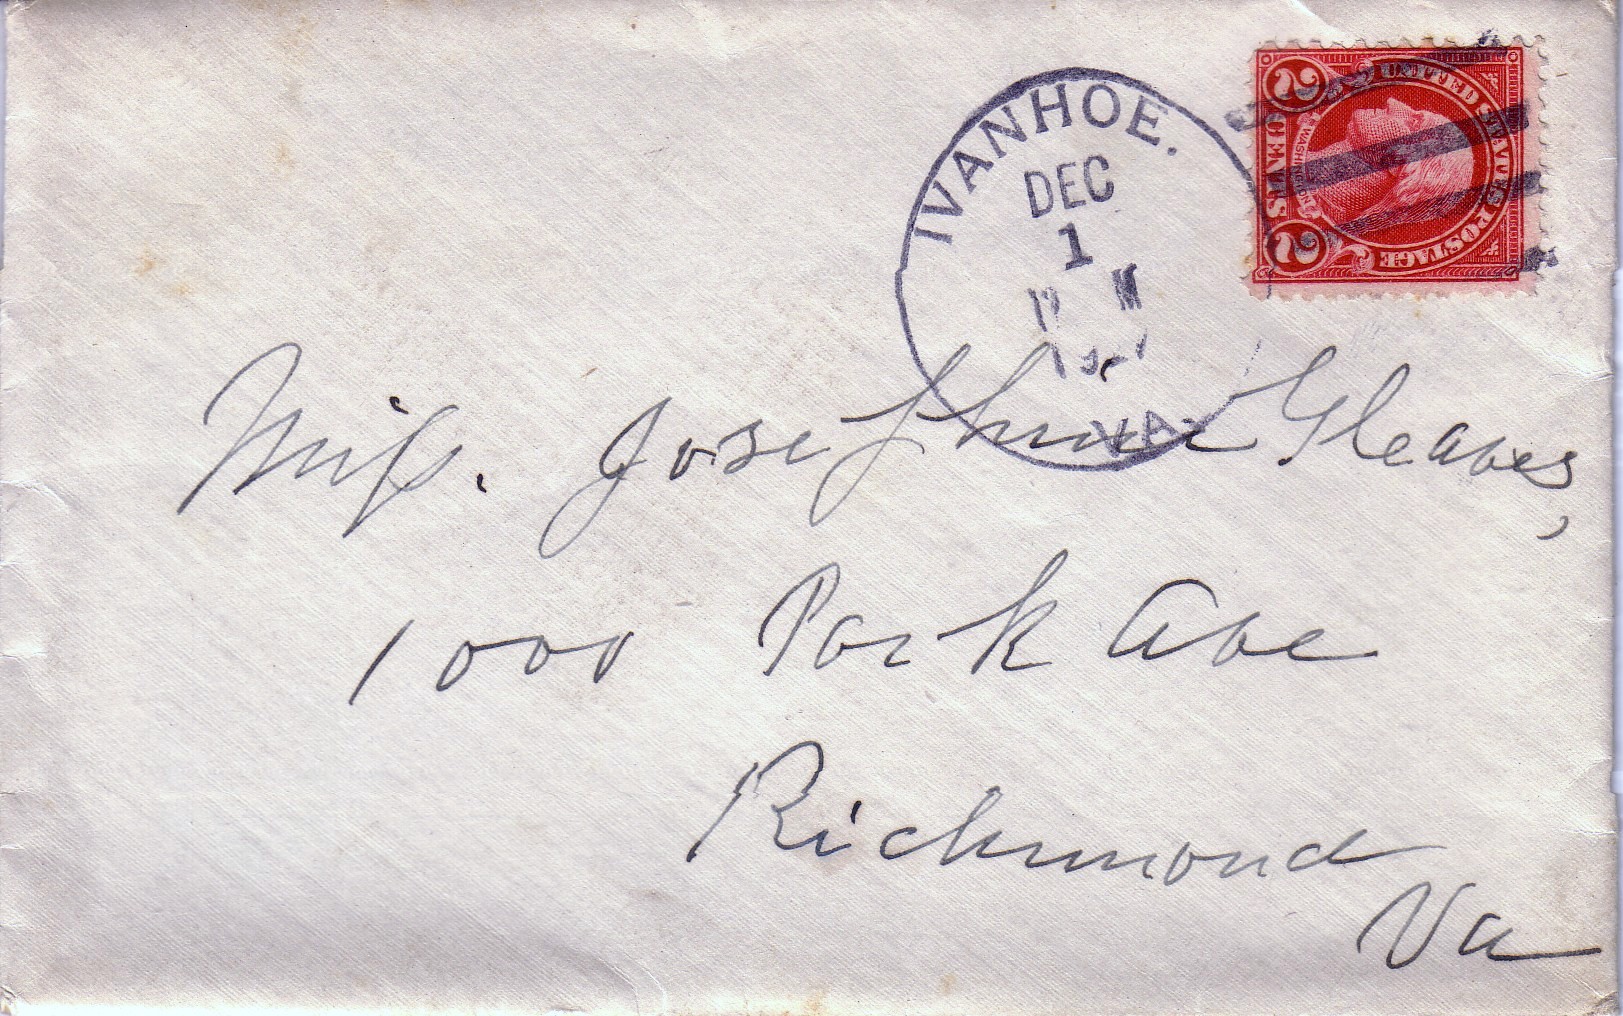 IVANHOE.
DEC
1
M
VA.
UNITED STATES POSTAGE
WASHINGTON
2 CENTS 2
Miss. Josephine Gleaves,
1000 Park Ave
Richmond
Va